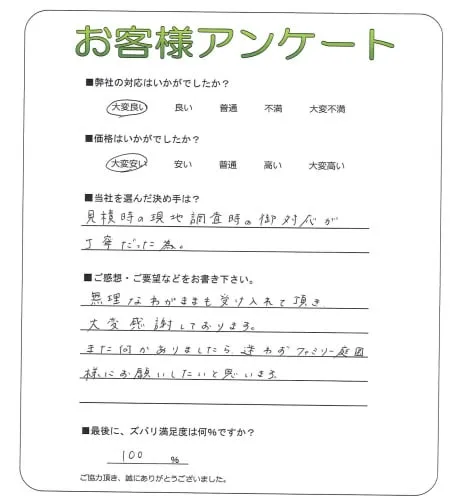 お客様アンケート
■弊社の対応はいかがでしたか？
大変良い 良い 普通 不満 大変不満
■価格はいかがでしたか？
大変安い 安い 普通 高い 大変高い
■当社を選んだ決め手は？
見積時の現地調査時の御対応が
丁寧だった為。
■ご感想・ご要望などをお書き下さい。
無理なわがままも受け入れて頂き
大変感謝しております。
また何かありましたら、迷わずファミリー庭園
様にお願いしたいと思います
■最後に、ズバリ満足度は何%ですか？
100 %
ご協力頂き、誠にありがとうございました。